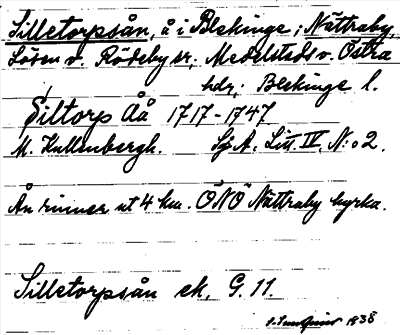 Silletorpsån, å i Blekinge; Nättraby,
Lösen o. Rödeby sr, Medelstads o. Östra
hdr; Blekinge l.
Siltorp Åå 1717-1747.
M. Kullenbergh. Sj. A. Litt. IV, N:o 2.
Ån rinner ut 4 km. ÖNÖ Nättraby kyrka.
Silletorpsån ek. G. 11.
1938